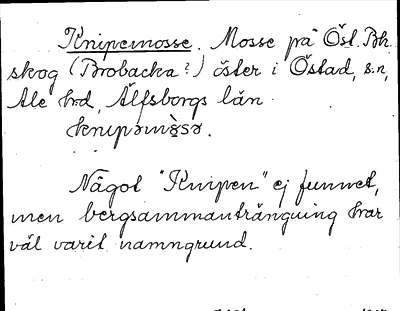 Knipemosse. Mosse på Öst. Bh.
skog (Brobacka?) öster i Östad, s:n,
Ale hrd, Älfsborgs län.
knipəmòsə.
Något "Knipen" ej funnet,
men bergsammanträngning har
väl varit namngrund.